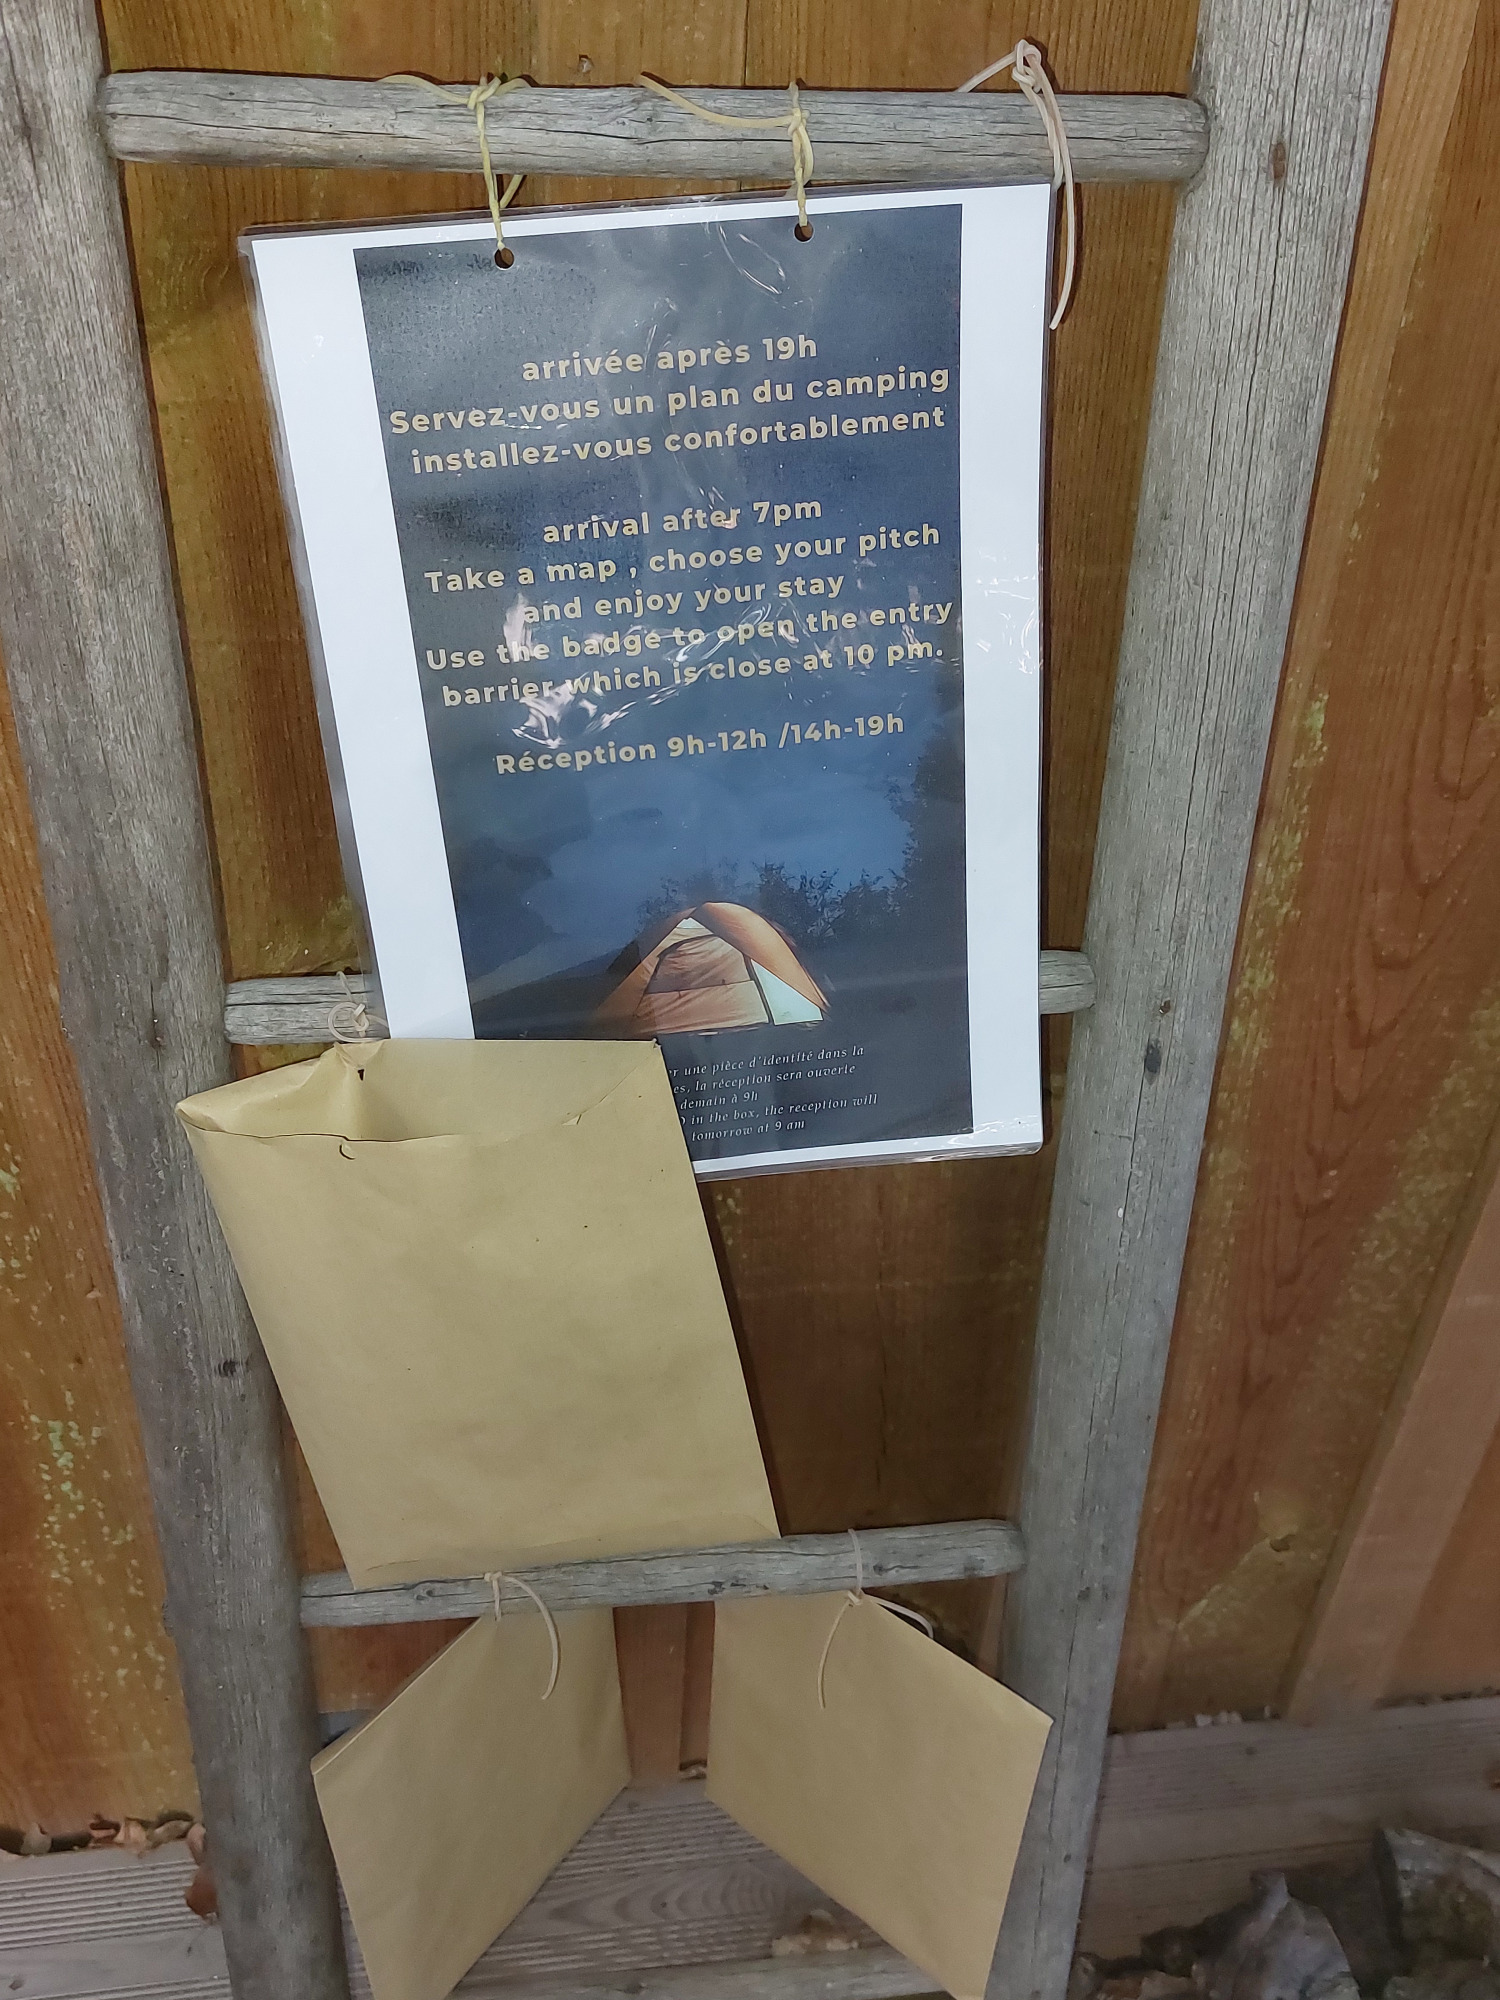 arrivée après 19h
Servez-vous un plan du camping
installez-vous confortablement
arrival after 7pm
Take a map , choose your pitch
and enjoy your stay
Use the badge to open the entry
barrier which is close at 10 pm.
Réception 9h-12h /14h-19h
une pièce d'identité dans la
la réception sera ouverte
demain à 9h
in the box, the reception will
tomorrow at 9 am